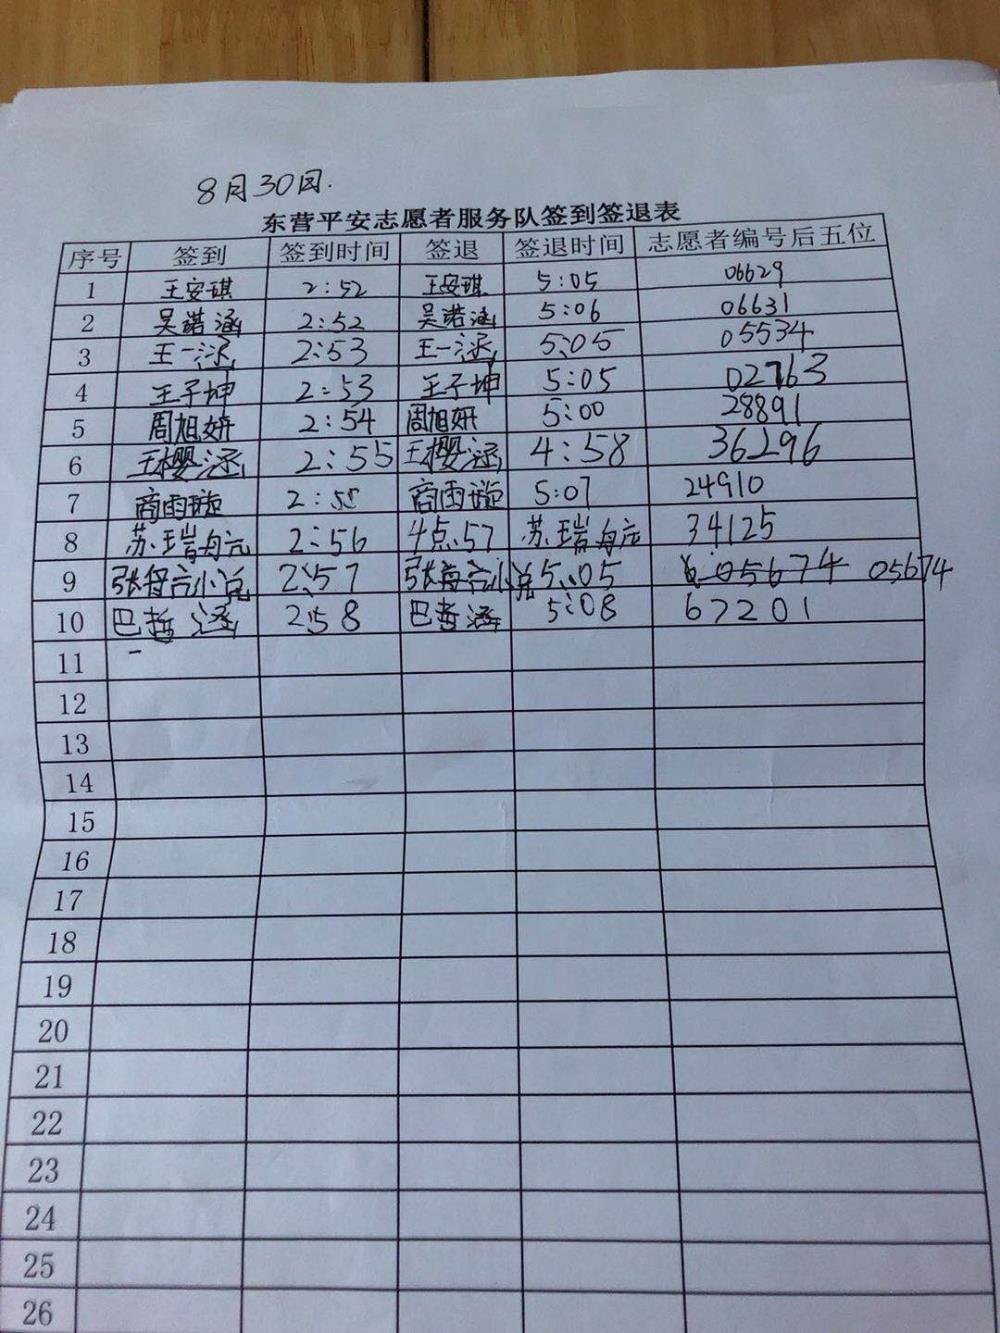 8月30日.
东营平安志愿者服务队签到签退表
序号 签到 签到时间 签退 签退时间 志愿者编号后五位
1 王安琪 2:52 王安琪 5:05 06629
2 吴诺涵 2:52 吴诺涵 5:06 06631
3 王一涵 2:53 王一涵 5:05 05534
4 王子坤 2:53 王子坤 5:05 02763
5 周旭妍 2:54 周旭妍 5:00 28891
6 王樱涵 2:55 王樱涵 4:58 36296
7 商雨璇 2:55 商雨璇 5:07 24910
8 苏瑞 2:56 4点57 苏瑞 34125
9 张 2:57 张 5:05 05674 05674
10 巴哲涵 2:58 巴哲涵 5:08 67201
11
12
13
14
15
16
17
18
19
20
21
22
23
24
25
26